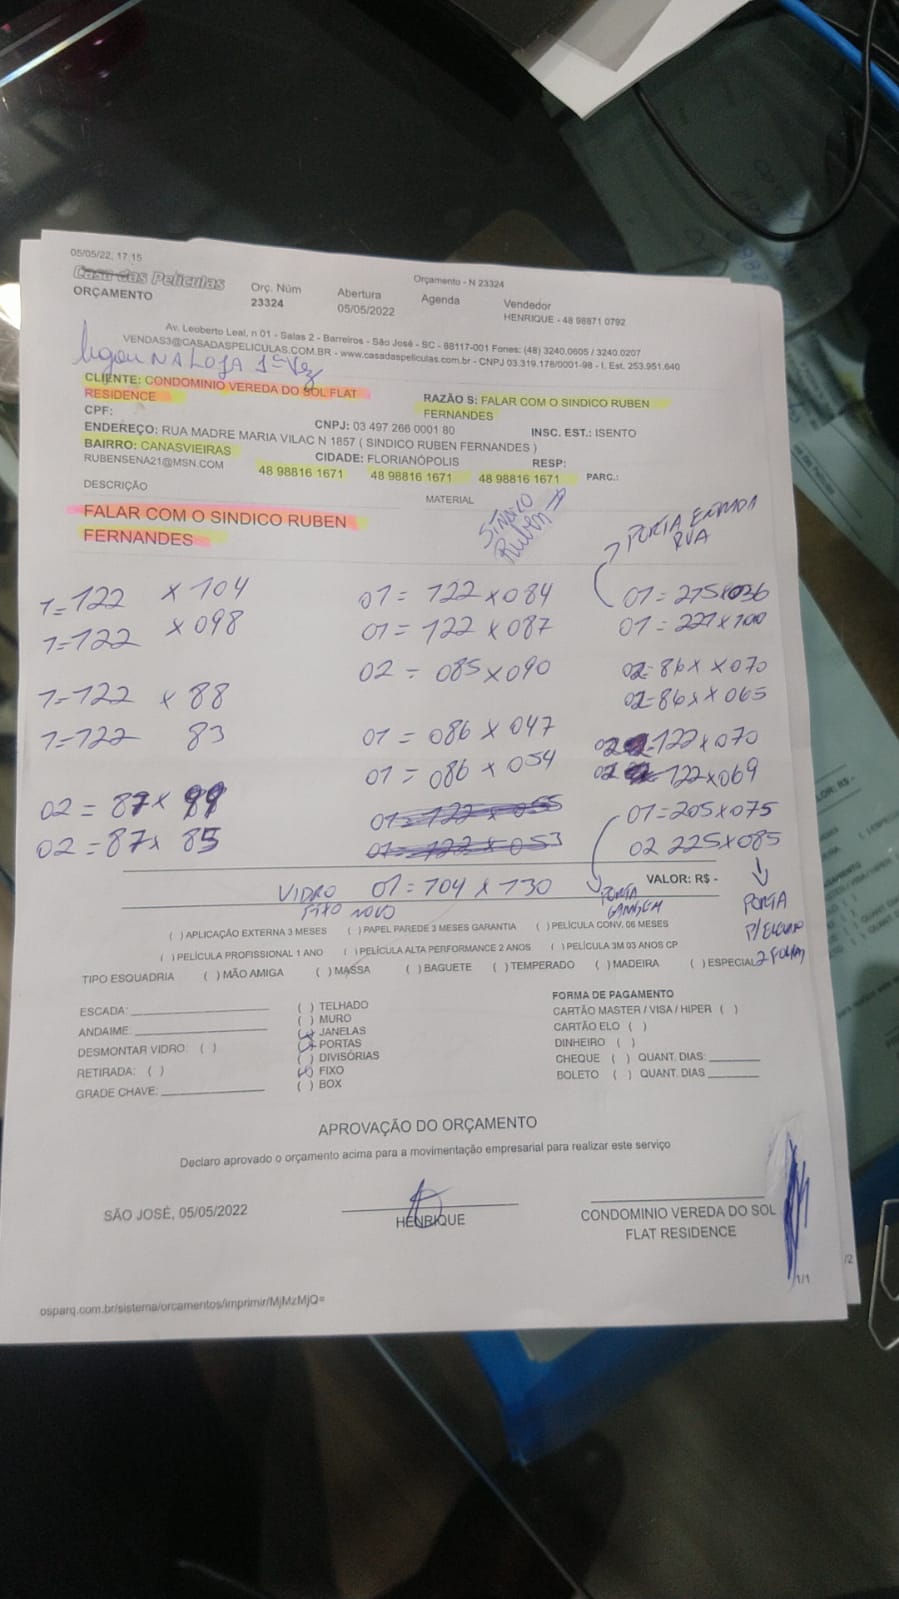 05/05/22, 17:15
Orçamento - N 23324
Casa das Películas
ORÇAMENTO
Orç. Núm
23324
Abertura
05/05/2022
Agenda
Vendedor
HENRIQUE - 48 98871 0792
Av. Leoberto Leal, n 01 - Salas 2 - Barreiros - São José - SC - 88117-001 Fones: (48) 3240.0605 / 3240.0207
VENDAS3@CASADASPELICULAS.COM.BR - www.casadaspeliculas.com.br - CNPJ 03.319.178/0001-98 - I. Est. 253.951.640
ligou NA LOJA 1ª Vez
CLIENTE: CONDOMINIO VEREDA DO SOL FLAT
RESIDENCE
RAZÃO S: FALAR COM O SINDICO RUBEN
FERNANDES
CPF:
CNPJ: 03 497 266 0001 80
INSC. EST.: ISENTO
ENDEREÇO: RUA MADRE MARIA VILAC N 1857 ( SINDICO RUBEN FERNANDES )
BAIRRO: CANASVIEIRAS
CIDADE: FLORIANÓPOLIS
RESP:
RUBENSENA21@MSN.COM
48 98816 1671
48 98816 1671
48 98816 1671
PARC.:
DESCRIÇÃO
MATERIAL
FALAR COM O SINDICO RUBEN
FERNANDES
SINDICO
Ruben
PORTA ENTRADA
RUA
1=122 x 104
1=122 x 098
1=122 x 88
1=122 83
02 = 87 x 99
02 = 87 x 85
01 = 122 x 084
01 = 122 x 087
02 = 085 x 090
01 = 086 x 047
01 = 086 x 054
01=122 x 055
01=122 x 053
01 = 215x036
01 = 221x100
02=86x x070
02=86x x065
02=122x070
02=122x069
01=205x075
02 225x085
VALOR: R$ -
VIDRO 01 = 104 x 130
FIXO NOVO
PORTA
GARAGEM
PORTA
2 FOLHAS
( ) APLICAÇÃO EXTERNA 3 MESES ( ) PAPEL PAREDE 3 MESES GARANTIA ( ) PELÍCULA CONV. 06 MESES
( ) PELÍCULA PROFISSIONAL 1 ANO ( ) PELÍCULA ALTA PERFORMANCE 2 ANOS ( ) PELÍCULA 3M 03 ANOS CP
TIPO ESQUADRIA ( ) MÃO AMIGA ( ) MASSA ( ) BAGUETE ( ) TEMPERADO ( ) MADEIRA ( ) ESPECIAL
ESCADA:
ANDAIME:
DESMONTAR VIDRO: ( )
RETIRADA: ( )
GRADE CHAVE:
( ) TELHADO
( ) MURO
( ) JANELAS
( ) PORTAS
( ) DIVISÓRIAS
( ) FIXO
( ) BOX
FORMA DE PAGAMENTO
CARTÃO MASTER / VISA / HIPER ( )
CARTÃO ELO ( )
DINHEIRO ( )
CHEQUE ( ) QUANT. DIAS:
BOLETO ( ) QUANT. DIAS
APROVAÇÃO DO ORÇAMENTO
Declaro aprovado o orçamento acima para a movimentação empresarial para realizar este serviço
SÃO JOSÉ, 05/05/2022
HENRIQUE
CONDOMINIO VEREDA DO SOL
FLAT RESIDENCE
1/1
/2
osparq.com.br/sistema/orcamentos/imprimir/MjMzMjQ=